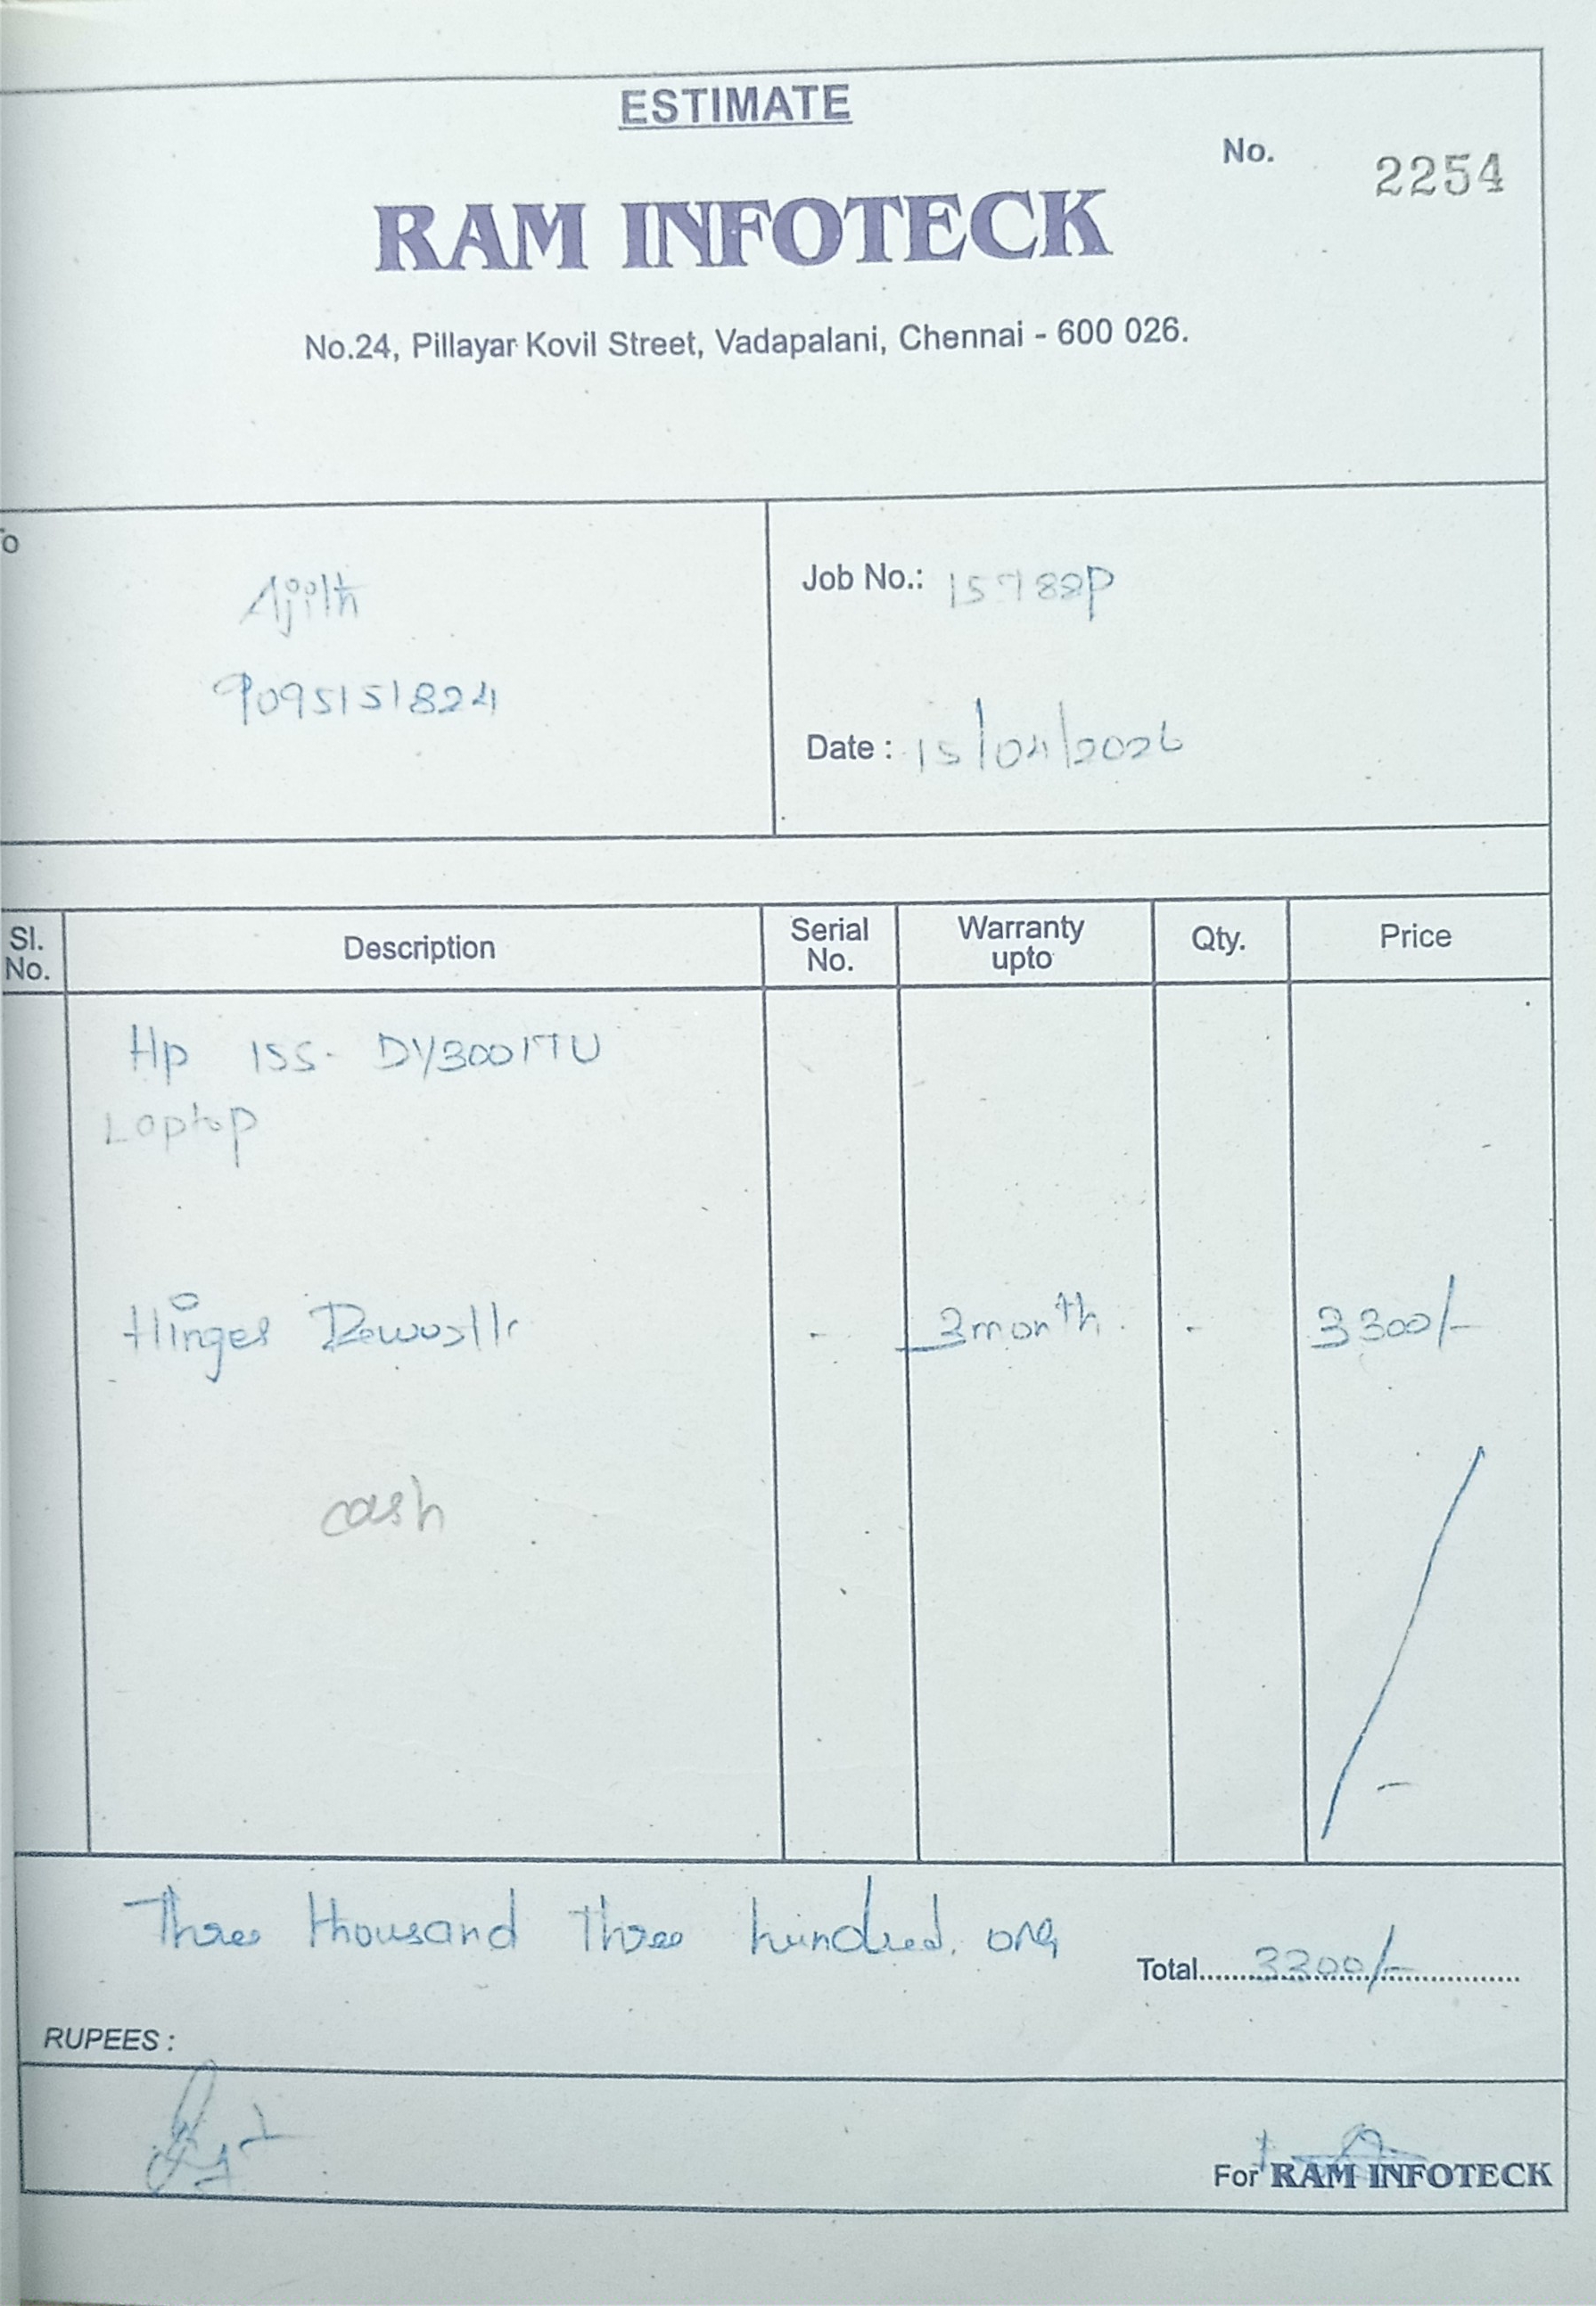 ESTIMATE
No. 2254
RAM INFOTECK
No.24, Pillayar Kovil Street, Vadapalani, Chennai - 600 026.
To
Ajith
9095151824
Job No.: 15788P
Date : 15/04/2026
Sl. No. Description Serial No. Warranty upto Qty. Price
Hp 15S- DY3001TU
Laptop
Hinges - 3month. - 3300/-
cash
Three thousand Three hundred. only
Total 3300/-
RUPEES :
For RAM INFOTECK